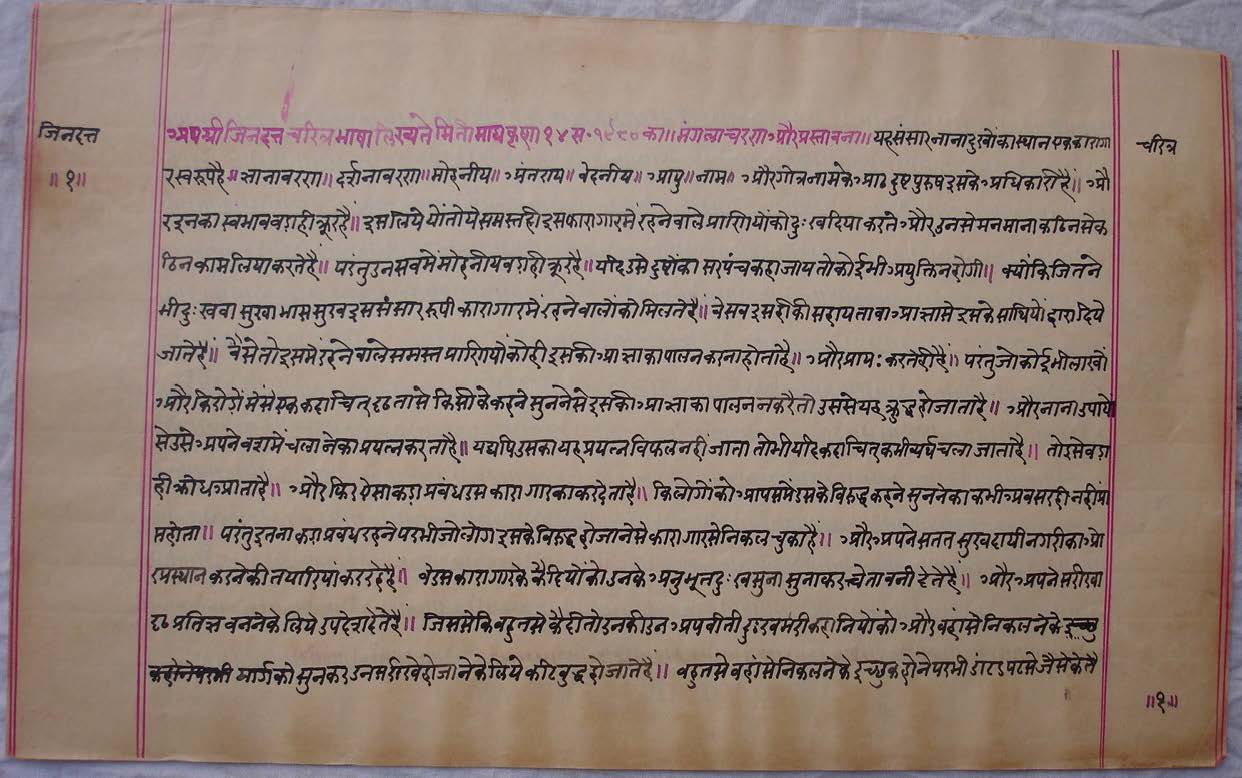 जिनदत्त
॥१॥
चरित्र
अथ श्री जिनदत्त चरित्र भाषा लिख्यते मिती माघ कृष्णा १४ स. १९८० का॥ मंगलाचरण और प्रस्तावना॥ यह संसार नाना दुखों का स्थान एक कारागा
र स्वरूप है॥ ज्ञानावरण॥ दर्शनावरण॥ मोहनीय॥ अंतराय॥ वेदनीय॥ आयु॥ नाम॥ और गोत्र नाम के आठ दुष्ट पुरुष इसके अधिकारी हैं॥ औ
र इनका स्वभाव बड़ा ही क्रूर है॥ इसलिये यों तो ये समस्त ही इस कारागार में रहने वाले प्राणियों को दुःख दिया करते और उनसे मनमाना कठिन से क
ठिन काम लिया करते हैं॥ परंतु उन सब में मोहनीय बड़ा ही क्रूर है॥ यदि उसे दुष्टों का सरपंच कहा जाय तो कोई भी अयुक्ति न होगी॥ क्योंकि जितने
भी दुःख वा सुखाभास सुख इस संसार रूपी कारागार में रहने वालों को मिलते हैं॥ वे सब इस ही की सहायता वा आज्ञा से इसके साथियों द्वारा दिये
जाते हैं॥ वैसे तो इसमें रहने वाले समस्त प्राणियों को ही इसकी आज्ञा का पालन करना होता है॥ और प्राय: करते ही हैं॥ परंतु जो कोई भी लाखों
और किरोड़ों में से एक कदाचित् दृढता से किसी के कहने सुनने से इसकी आज्ञा का पालन न करै तो उससे यह क्रुद्ध हो जाता है॥ और नाना उपायों
से उसे अपने वश में चलाने का प्रयत्न करता है॥ यद्यपि उसका यह प्रयत्न विफल नहीं जाता तो भी यदि कदाचित् कभी व्यर्थ चला जाता है॥ तो इसे बड़ा
ही क्रोध आता है॥ और फिर ऐसा कड़ा प्रबंध उस कारागार का कर देता है॥ कि लोगों को आपस में उसके विरुद्ध कहने सुनने का कभी अवसर ही नहीं प्रा
प्त होता॥ परंतु इतना कड़ा प्रबंध रहने पर भी जो लोग इसके विरुद्ध हो जाने से कारागार से निकल चुका हैं॥ और अपने सतत सुखदायी नगरी का ओ
र प्रस्थान करने की तयारियां कर रहे हैं॥ वे उस कारागार के कैदियों को उनके अनुभूत दुःख सुना सुनाकर चेतावनी देते हैं॥ और अपने सरीखा
दृढ प्रतिज्ञ बनने के लिये उपदेश देते हैं॥ जिससे कि बहुत से कैदी तो उनकी उन अपबीती दुःख भरी कहानियों को और वहां से निकलने के
मार्ग को सुनकर उन सरीखे हो जाने के लिये कटिबुद्ध हो जाते हैं॥ बहुत से वहां से निकलने के इच्छुक होने पर भी डांट डपट से जैसे के तै
॥१॥